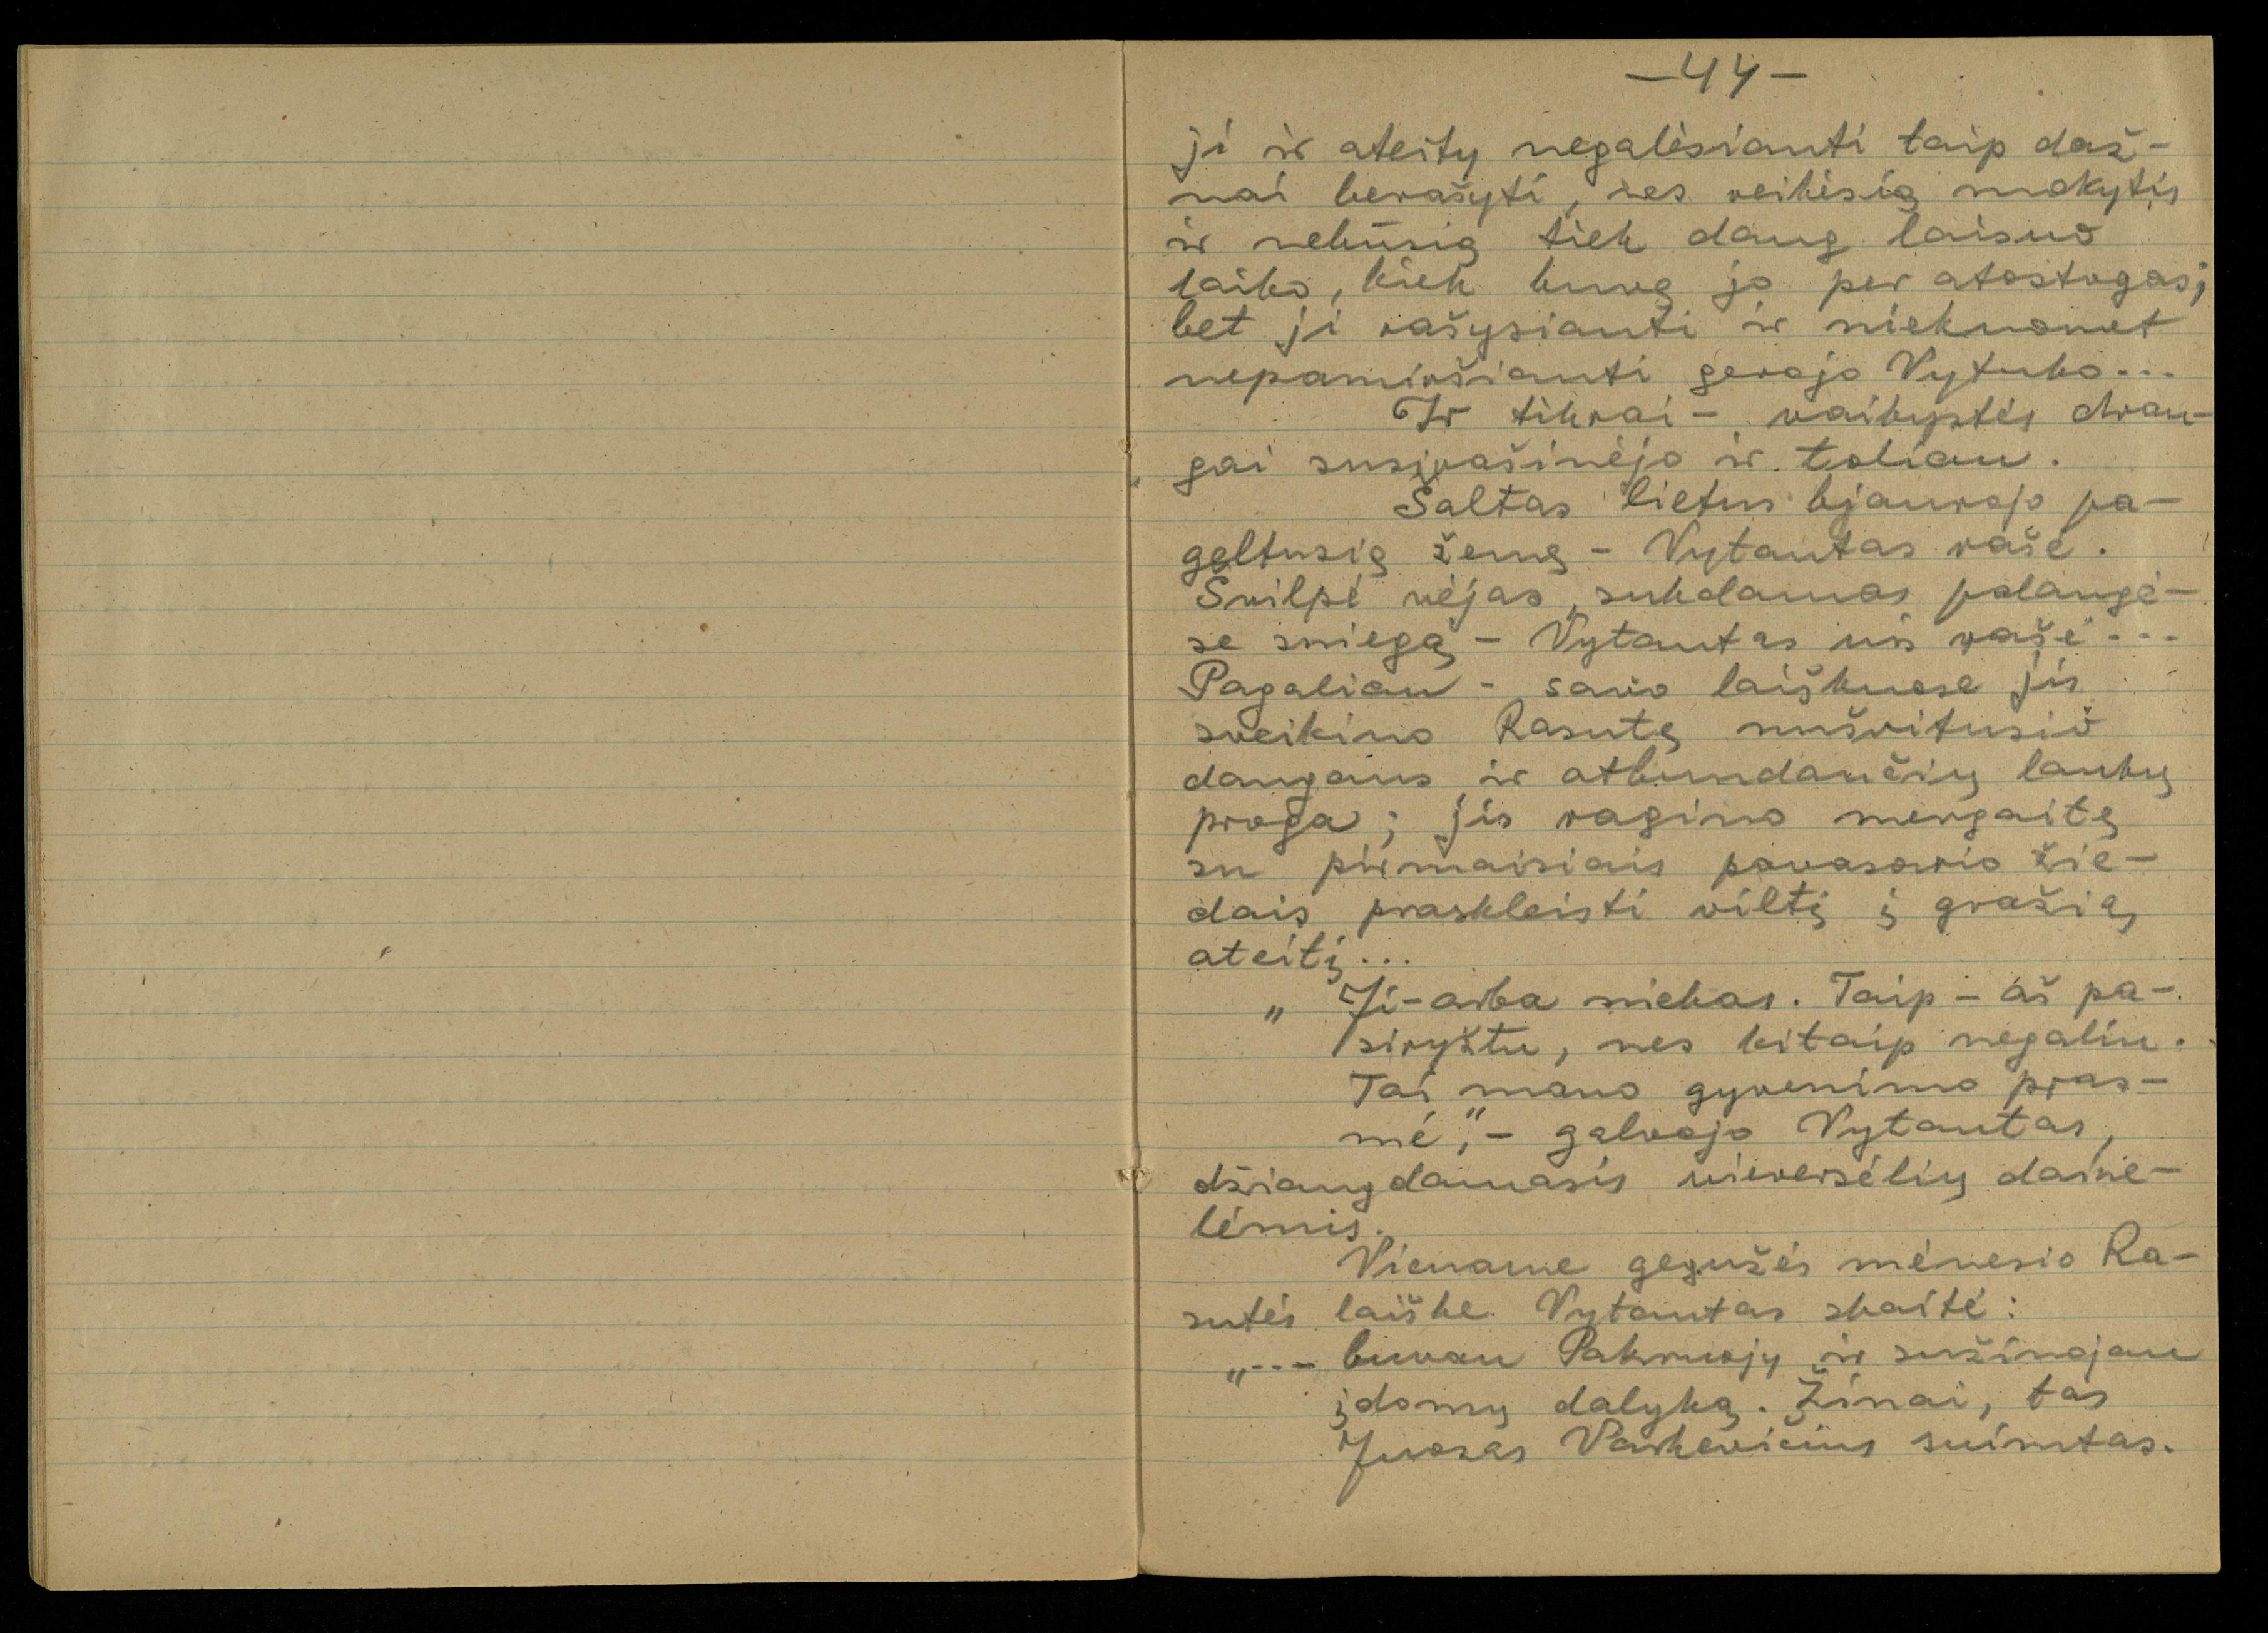 —44—
ji ir ateity negalėsianti taip daž-
nai berašyti, nes reikėsią mokytis
ir nebūsią tiek daug laisvo
laiko, kiek buvę jo per atostogas;
bet ji rašysianti ir niekuomet
nepamiršianti gerojo Vytuko...
Ir tikrai - vaikystės drau-
gai susirašinėjo ir toliau.
Šaltas lietus bjaurojo pa-
geltusią žemę - Vytautas rašė.
Švilpė vėjas, sukdamas palangė-
se sniegą - Vytautas vis rašė...
Pagaliau - savo laiškuose jis
sveikino Rasutę nušvitusio
dangaus ir atbundančių laukų
proga; jis ragino mergaitę
su pirmaisiais pavasario žie-
dais praskleisti viltį į gražią
ateitį...
„Ji - arba niekas. Taip - aš pa-
siryžtu, nes kitaip negaliu.
Tai mano gyvenimo pras-
mė", - galvojo Vytautas,
džiaugdamasis vieversėlių daine-
lėmis.
Viename gegužės mėnesio Ra-
sutės laiške Vytautas skaitė:
„... buvau Pakruojy ir sužinojau
įdomų dalyką. Žinai, tas
Juozas Vaškevičius suimtas.